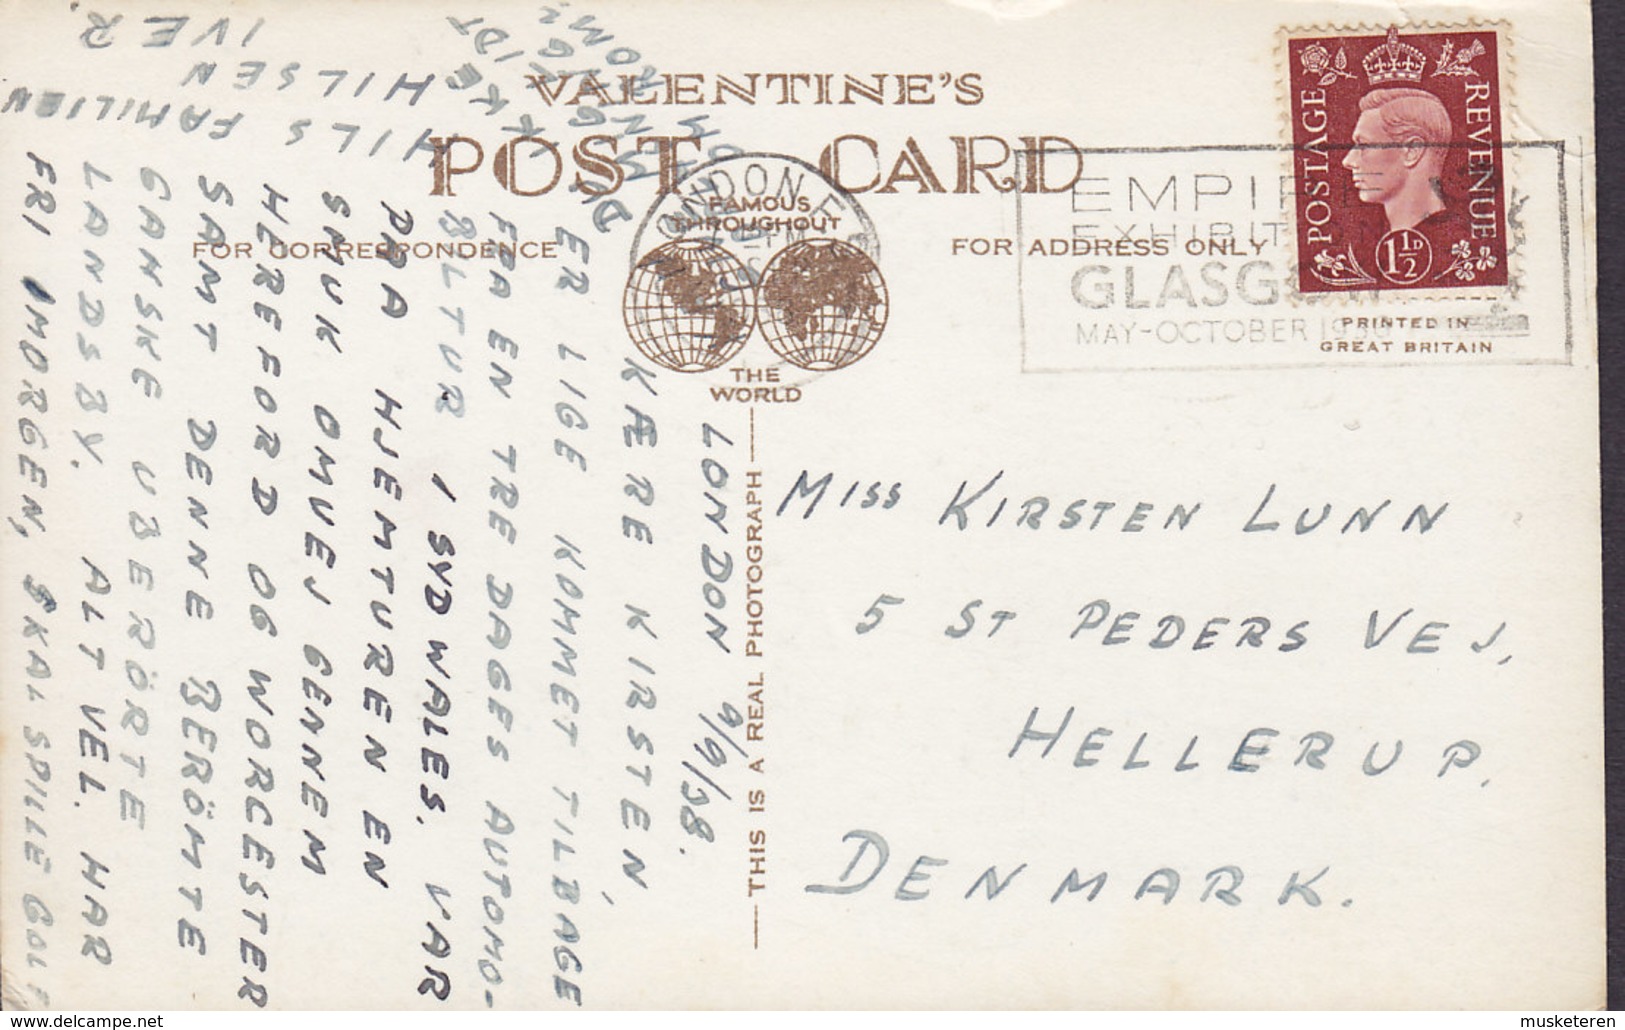 VALENTINE'S
POST CARD
FAMOUS
THROUGHOUT
FOR CORRESPONDENCE
FOR ADDRESS ONLY
THE
WORLD
THIS IS A REAL PHOTOGRAPH
PRINTED IN
GREAT BRITAIN
POSTAGE
REVENUE
1½D
LONDON
EMPIRE
EXHIBIT
GLASG
MAY-OCTOBER
LONDON 9/9/38.
KÆRE KIRSTEN,
ER LIGE KOMMET TILBAGE
FRA EN TRE DAGES AUTOMO-
BILTUR I SYDWALES. VAR
PAA HJEMTUREN EN
SMUK OMVEJ GENNEM
HEREFORD OG WORCESTER
SAMT DENNE BERÖMTE
GANSKE UBERÖRTE
LANDSBY. ALT VEL. HAR
FRI IMORGEN, SKAL SPILLE GOLF
HILS FAMILIEN
HILSEN
IVER.
MISS KIRSTEN LUNN
5 ST PEDERS VEJ,
HELLERUP.
DENMARK.
musketeren
www.delcampe.net